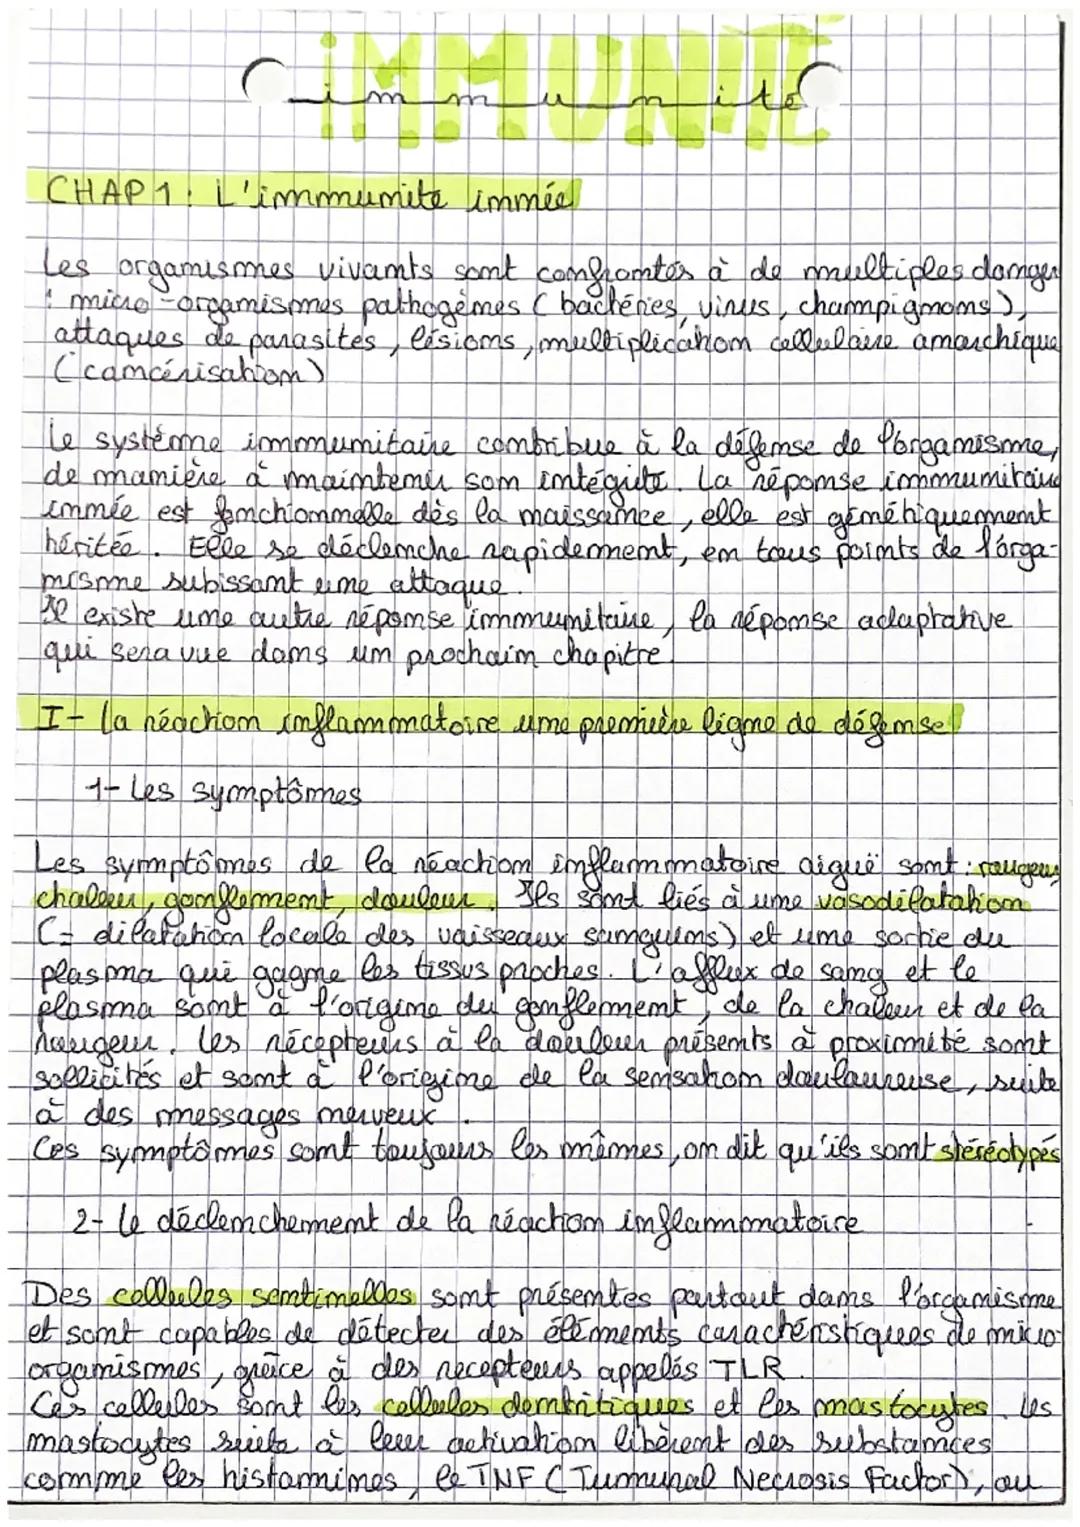 IMMUNITÉ
immunité
CHAP 1 : L'immunite innée
Les organismes vivants sont confrontés à de multiples danger
: micro-organismes pathogènes (bactéries, virus, champignons),
attaques de parasites, lésions, multiplication cellulaire anarchique
(cancérisation)
Le système immunitaire contribue à la défense de l'organisme,
de manière à maintenir son intégrité. La réponse immunitaire
innée est fonctionnelle dès la naissance, elle est génétiquement
héritée. Elle se déclenche rapidement, en tous points de l'orga-
nisme subissant une attaque.
Il existe une autre réponse immunitaire, la réponse adaptative
qui sera vue dans un prochain chapitre.
I- La réaction inflammatoire une première ligne de défense
1- Les symptômes
Les symptômes de la réaction inflammatoire aiguë sont : rougeur,
chaleur, gonflement, douleur. Ils sont liés à une vasodilatation
(= dilatation locale des vaisseaux sanguins) et une sortie du
plasma qui gagne les tissus proches. L'afflux de sang et le
plasma sont à l'origine du gonflement, de la chaleur et de la
rougeur. Les récepteurs à la douleur présents à proximité sont
sollicités et sont à l'origine de la sensation douloureuse, suite
à des messages nerveux.
Ces symptômes sont toujours les mêmes, on dit qu'ils sont stéréotypés
2- Le déclenchement de la réaction inflammatoire
Des cellules sentinelles sont présentes partout dans l'organisme
et sont capables de détecter des éléments caractéristiques de micro-
organismes, grâce à des recepteurs appelés TLR.
Ces cellules sont les cellules dentritiques et les mastocytes. Les
mastocytes suite à leur activation libèrent des substances
comme les histamines, le TNF (Tumunal Necrosis Factor), ou